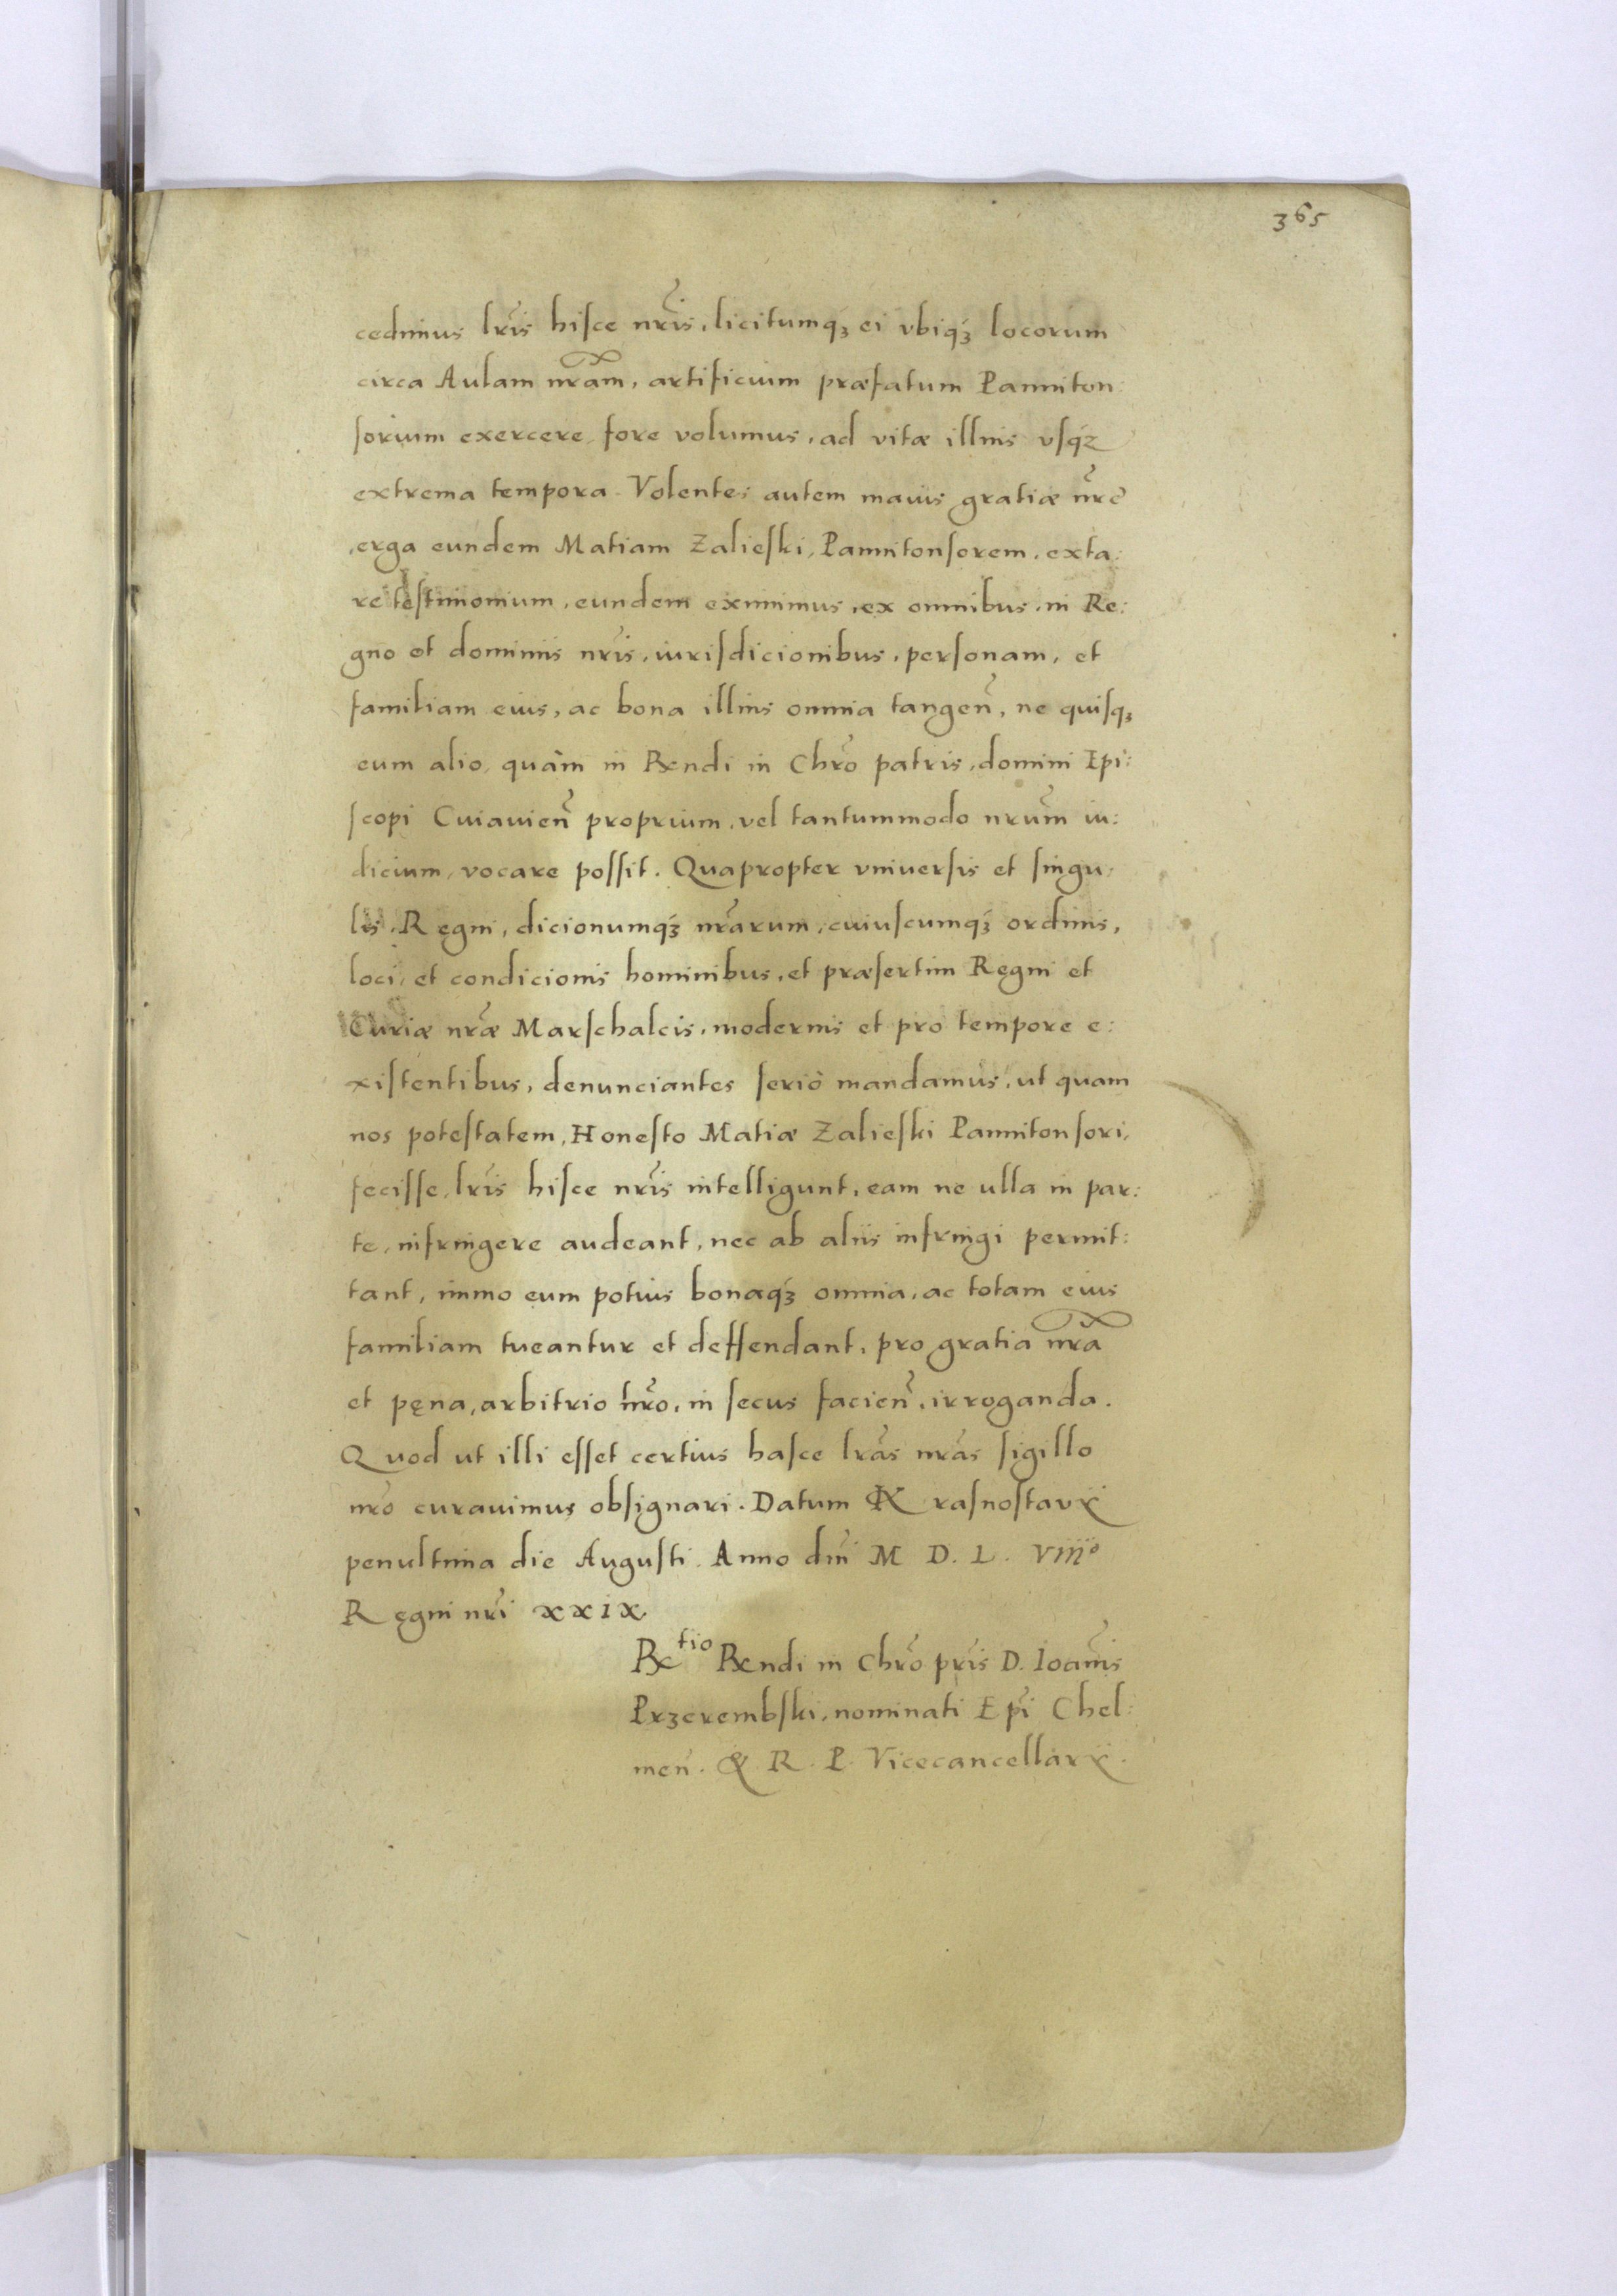 365
cedimus lr̃is hisce nr̃is, licitumqꝫ ei vbiqꝫ locorum
circa Aulam nr̃am, artificium præfatum Panniton:
sorium exercere, fore volumus, ad vitæ illius vsqꝫ
extrema tempora. Volentes autem maius gratiæ nr̃e
erga eundem Matiam Zalieski, Pannitonsorem, exta:
re testimonium, eundem eximimus, ex omnibus, in Re:
gno et dominiis nr̃is, iurisdicionibus, personam, et
familiam eius, ac bona illius omnia tangeñ, ne quisqꝫ
eum alio, quàm in Rx̃ndi in Chr̃o patris, domini Epi:
scopi Cuiauieñ proprium, vel tantummodo nr̃um iu:
dicium, vocare possit. Quapropter vniuersis et singu:
lis, Regni, dicionumqꝫ nr̃arum, cuiuscumqꝫ ordinis,
loci, et condicionis hominibus, et præsertim Regni et
Curiæ nr̃æ Marschalcis, modernis et pro tempore e:
xistentibus, denunciantes seriò mandamus, ut quam
nos potestatem, Honesto Matiæ Zalieski Pannitonsori,
fecisse, lr̃is hisce nr̃is intelligunt, eam ne ulla in par:
te, infringere audeant, nec ab aliis infringi permit:
tant, immo eum potius bonaqꝫ omnia, ac totam eius
familiam tueantur et deffendant, pro gratia nr̃a
et pęna, arbitrio nr̃o, in secus facieñ, irroganda.
Quod ut illi esset certius hasce lr̃as nr̃as sigillo
nr̃o curauimus obsignari. Datum Krasnostauiæ
penultima die Augusti. Anno dñi M D. L. VIII°
Regni nr̃i XXIX
Rx̃tio Rx̃ndi in Chr̃o pr̃is D. Ioañis
Przerembski, nominati Epĩ Chel:
meñ. & R. P. Vicecancellarii.